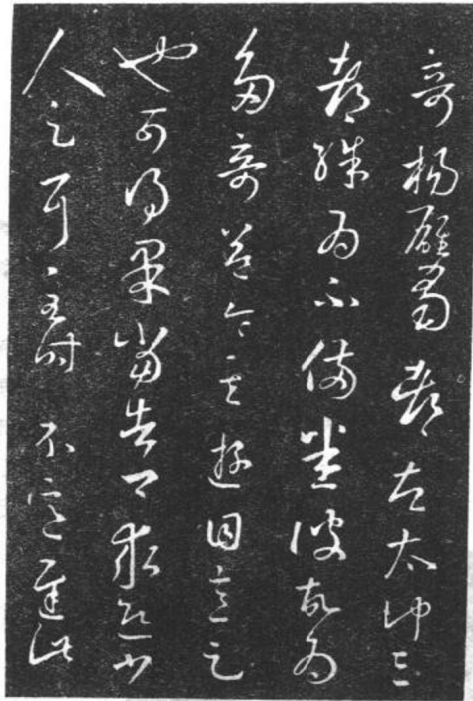 奇楊雄蜀都左太沖三
都殊為不備悉彼故為
多奇益令其遊目意足
也可得果當告卿求迎少
人足耳至時示意遲此